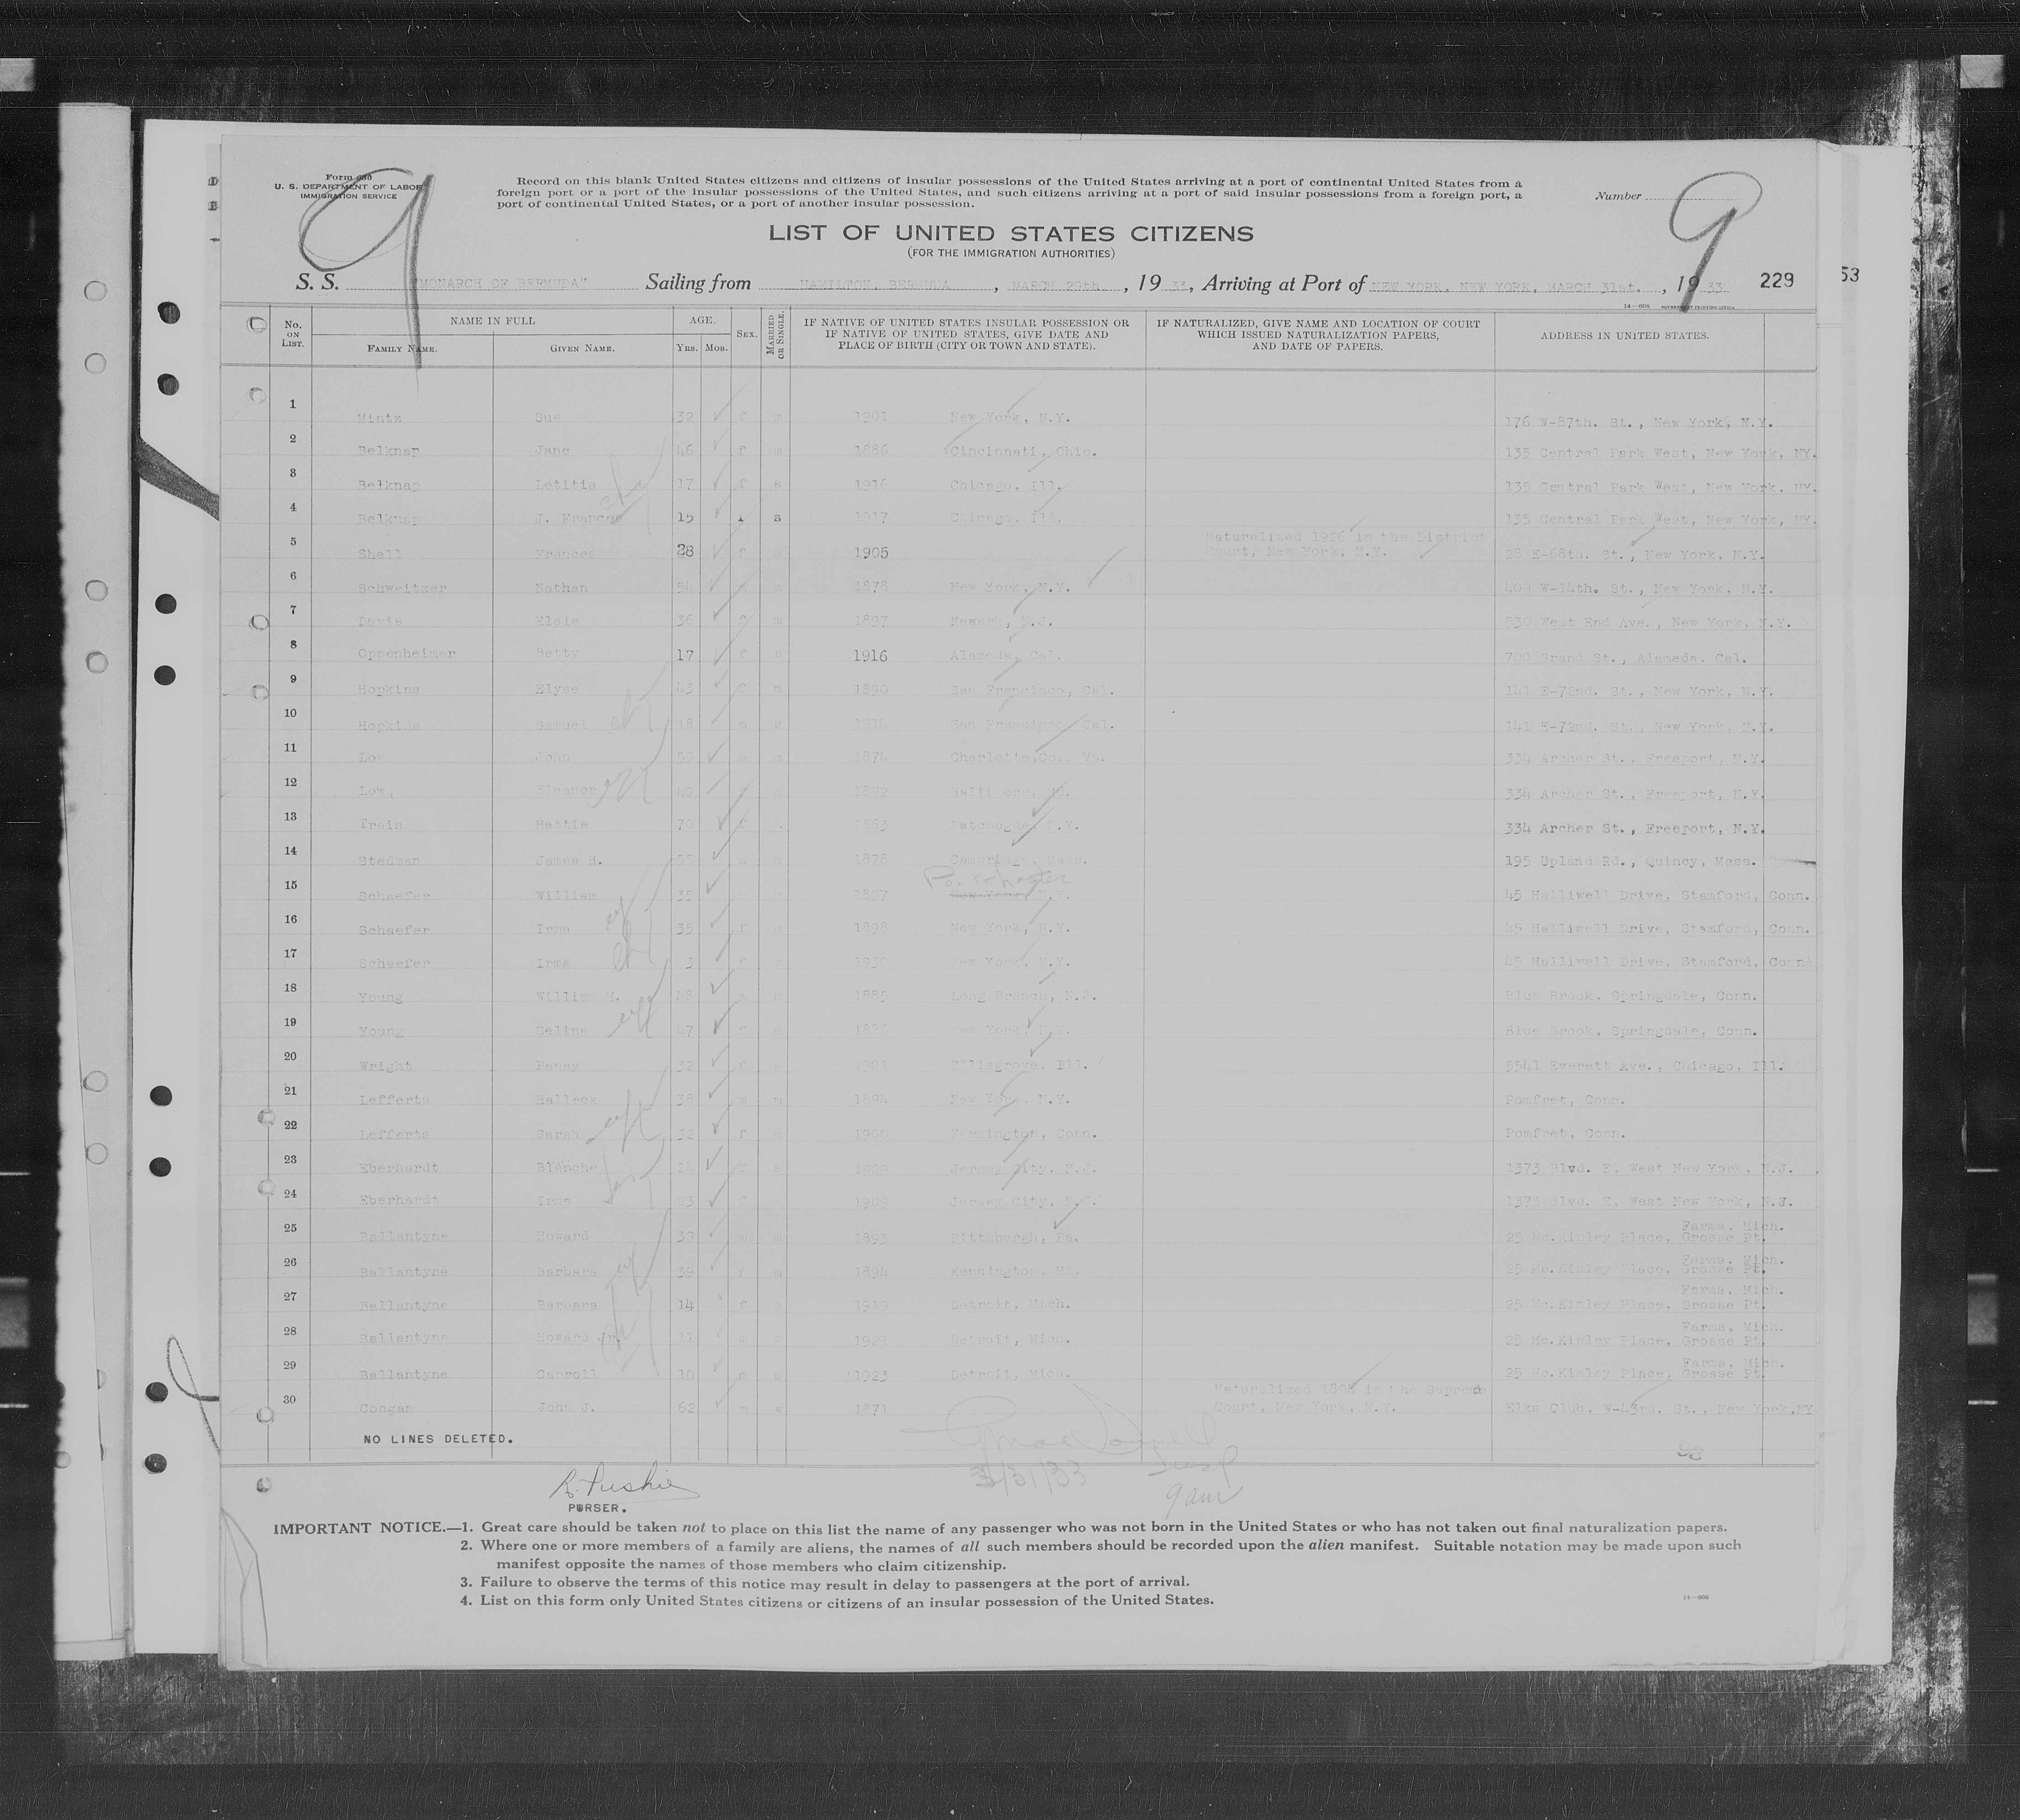 Form 630
U. S. DEPARTMENT OF LABOR
IMMIGRATION SERVICE
9
Record on this blank United States citizens and citizens of insular possessions of the United States arriving at a port of continental United States from a
foreign port or a port of the insular possessions of the United States, and such citizens arriving at a port of said insular possessions from a foreign port, a
port of continental United States, or a port of another insular possession.
Number
9
LIST OF UNITED STATES CITIZENS
(FOR THE IMMIGRATION AUTHORITIES)
S. S. "MONARCH OF BERMUDA" Sailing from HAMILTON, BERMUDA, MARCH 29th, 1933, Arriving at Port of NEW YORK, NEW YORK, MARCH 31st., 1933 229 53
14—608
No. ON LIST. NAME IN FULL FAMILY NAME. GIVEN NAME. AGE. YRS. MOS. SEX. MARRIED OR SINGLE. IF NATIVE OF UNITED STATES INSULAR POSSESSION OR IF NATIVE OF UNITED STATES, GIVE DATE AND PLACE OF BIRTH (CITY OR TOWN AND STATE). IF NATURALIZED, GIVE NAME AND LOCATION OF COURT WHICH ISSUED NATURALIZATION PAPERS, AND DATE OF PAPERS. ADDRESS IN UNITED STATES.
1 Mintz Sue 32 f m 1901 New York, N.Y. 176 W-87th. St., New York, N.Y.
2 Belknap Jane 46 f m 1886 Cincinnati, Ohio. 135 Central Park West, New York, NY.
3 Belknap Letitia 17 f s 1916 Chicago, Ill. 135 Central Park West, New York, NY.
4 Belknap J. Frances 15 f s 1917 Chicago, Ill. 135 Central Park West, New York, NY.
5 Shell Frances 28 f 1905 Naturalized 1926 in the District Court, New York, N.Y. 28 E-68th. St., New York, N.Y.
6 Schweitzer Nathan 54 m 1878 New York, N.Y. 409 W-14th. St., New York, N.Y.
7 Davis Elsie 36 f m 1897 Newark, N.J. 530 West End Ave., New York, N.Y.
8 Oppenheimer Betty 17 f s 1916 Alameda, Cal. 700 Grand St., Alameda, Cal.
9 Hopkins Elyse 43 f m 1890 San Francisco, Cal. 141 E-72nd. St., New York, N.Y.
10 Hopkins Samuel 18 m s 1914 San Francisco, Cal. 141 E-72nd. St., New York, N.Y.
11 Low John 59 m 1874 Charlotte Co. Va. 334 Archer St., Freeport, N.Y.
12 Low, Eleanor f m Baltimore, Md. 334 Archer St., Freeport, N.Y.
13 Train Hattie 70 f 1863 Patchogue, N.Y. 334 Archer St., Freeport, N.Y.
14 Stedman James H. 55 m m 1878 Cambridge, Mass. 195 Upland Rd., Quincy, Mass.
Portchester
15 Schaefer William 35 m m 1897 New York, N.Y. 45 Halliwell Drive, Stamford, Conn.
16 Schaefer Irma 35 f m 1898 New York, N.Y. 45 Halliwell Drive, Stamford, Conn.
17 Schaefer Irma 3 f s 1930 New York, N.Y. 45 Halliwell Drive, Stamford, Conn.
18 Young William H. 48 m m 1885 Long Branch, N.J. Blue Brook, Springdale, Conn.
19 Young Selina 47 f m 1886 New York, N.Y. Blue Brook, Springdale, Conn.
20 Wright Penny 32 f 1901 Ellisgrove, Ill. 5541 Everett Ave., Chicago, Ill.
21 Lefferts Halleck 38 m m 1894 New York, N.Y. Pomfret, Conn.
22 Lefferts Sarah 32 f m 1900 Farmington, Conn. Pomfret, Conn.
23 Eberhardt Blanche 24 f s Jersey City, N.J. 1373 Blvd. E. West New York, N.J.
24 Eberhardt Irma 23 f Jersey City, N.J. 1373 Blvd. E. West New York, N.J.
25 Ballantyne Howard 39 m m 1893 Pittsburgh, Pa. 25 Mc.Kinley Place, Grosse Pt. Farms, Mich.
26 Ballantyne Barbara 39 f m 1894 Kensington, Md. 25 Mc.Kinley Place, Grosse Pt. Farms, Mich.
27 Ballantyne Barbara 14 f s 1919 Detroit, Mich. 25 Mc.Kinley Place, Grosse Pt. Farms, Mich.
28 Ballantyne Howard Jr. 11 m s 1921 Detroit, Mich. 25 Mc.Kinley Place, Grosse Pt. Farms, Mich.
29 Ballantyne Carroll 10 s 1923 Detroit, Mich. 25 Mc.Kinley Place, Grosse Pt. Farms, Mich.
30 Coogan John J. 62 m w 1871 Naturalized in the Supreme Court, New York, N.Y. Elks Club, W-43rd. St., New York,NY
NO LINES DELETED.
3/31/33
9 am
PURSER.
IMPORTANT NOTICE.—1. Great care should be taken not to place on this list the name of any passenger who was not born in the United States or who has not taken out final naturalization papers.
2. Where one or more members of a family are aliens, the names of all such members should be recorded upon the alien manifest. Suitable notation may be made upon such
manifest opposite the names of those members who claim citizenship.
3. Failure to observe the terms of this notice may result in delay to passengers at the port of arrival.
4. List on this form only United States citizens or citizens of an insular possession of the United States.
14—608